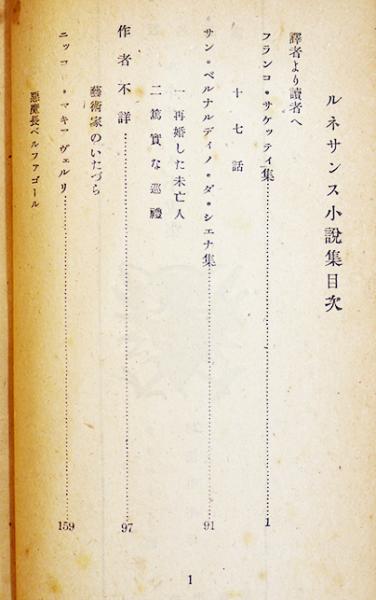 ルネサンス小說集目次
譯者より讀者へ
フランコ・サケッティ集……1
十七話
サン・ベルナルディノ・ダ・シエナ集……91
一 再婚した未亡人
二 篤實な巡禮
作者不詳……97
藝術家のいたづら
ニッコロ・マキァヴェルリ……159
惡魔長ベルファゴール
1